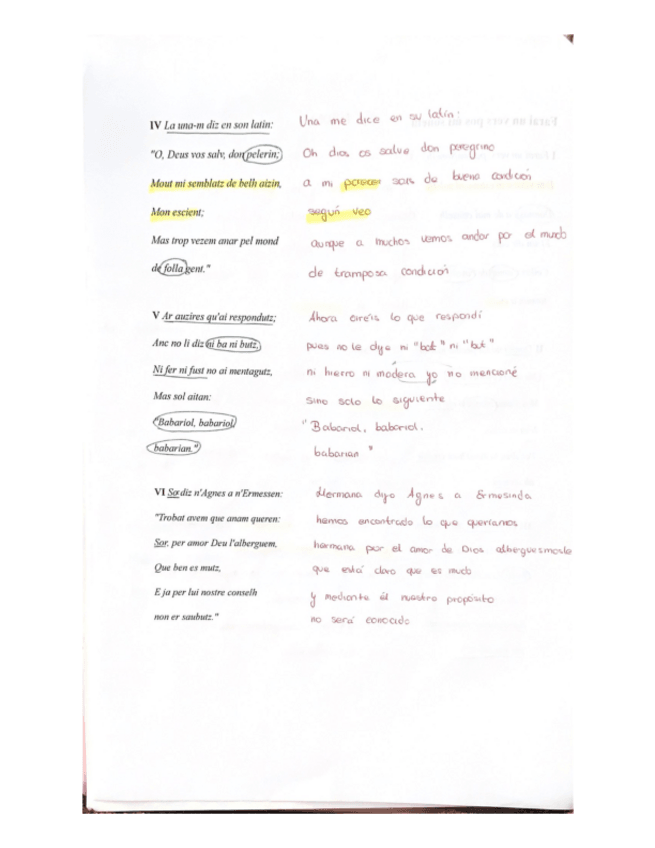 IV La una-m diz en son latin: Una me dice en su latín:
"O, Deus vos salv, don pelerin; Oh dios os salve don peregrino
Mout mi semblatz de belh aizin, a mi parecer sois de buena condición
Mon escient; según veo
Mas trop vezem anar pel mond aunque a muchos vemos andar por el mundo
de folla gent." de tramposa condición
V Ar auzires qu'ai respondutz; Ahora oireis lo que respondí
Anc no li diz ni ba ni butz, pues no le dije ni "bat" ni "but"
Ni fer ni fust no ai mentagutz, ni hierro ni madera yo no mencioné
Mas sol aitan: sino solo lo siguiente
"Babariol, babariol, "Babariol, babariol,
babarian." babarian"
VI Sor diz n'Agnes a n'Ermessen: Hermana dijo Agnes a Ermesinda
"Trobat avem que anam queren: hemos encontrado lo que queríamos
Sor, per amor Deu l'alberguem, hermana por el amor de Dios alberguesmosle
Que ben es mutz, que está claro que es mudo
E ja per lui nostre conselh y mediante él nuestro propósito
non er saubutz." no será conocido